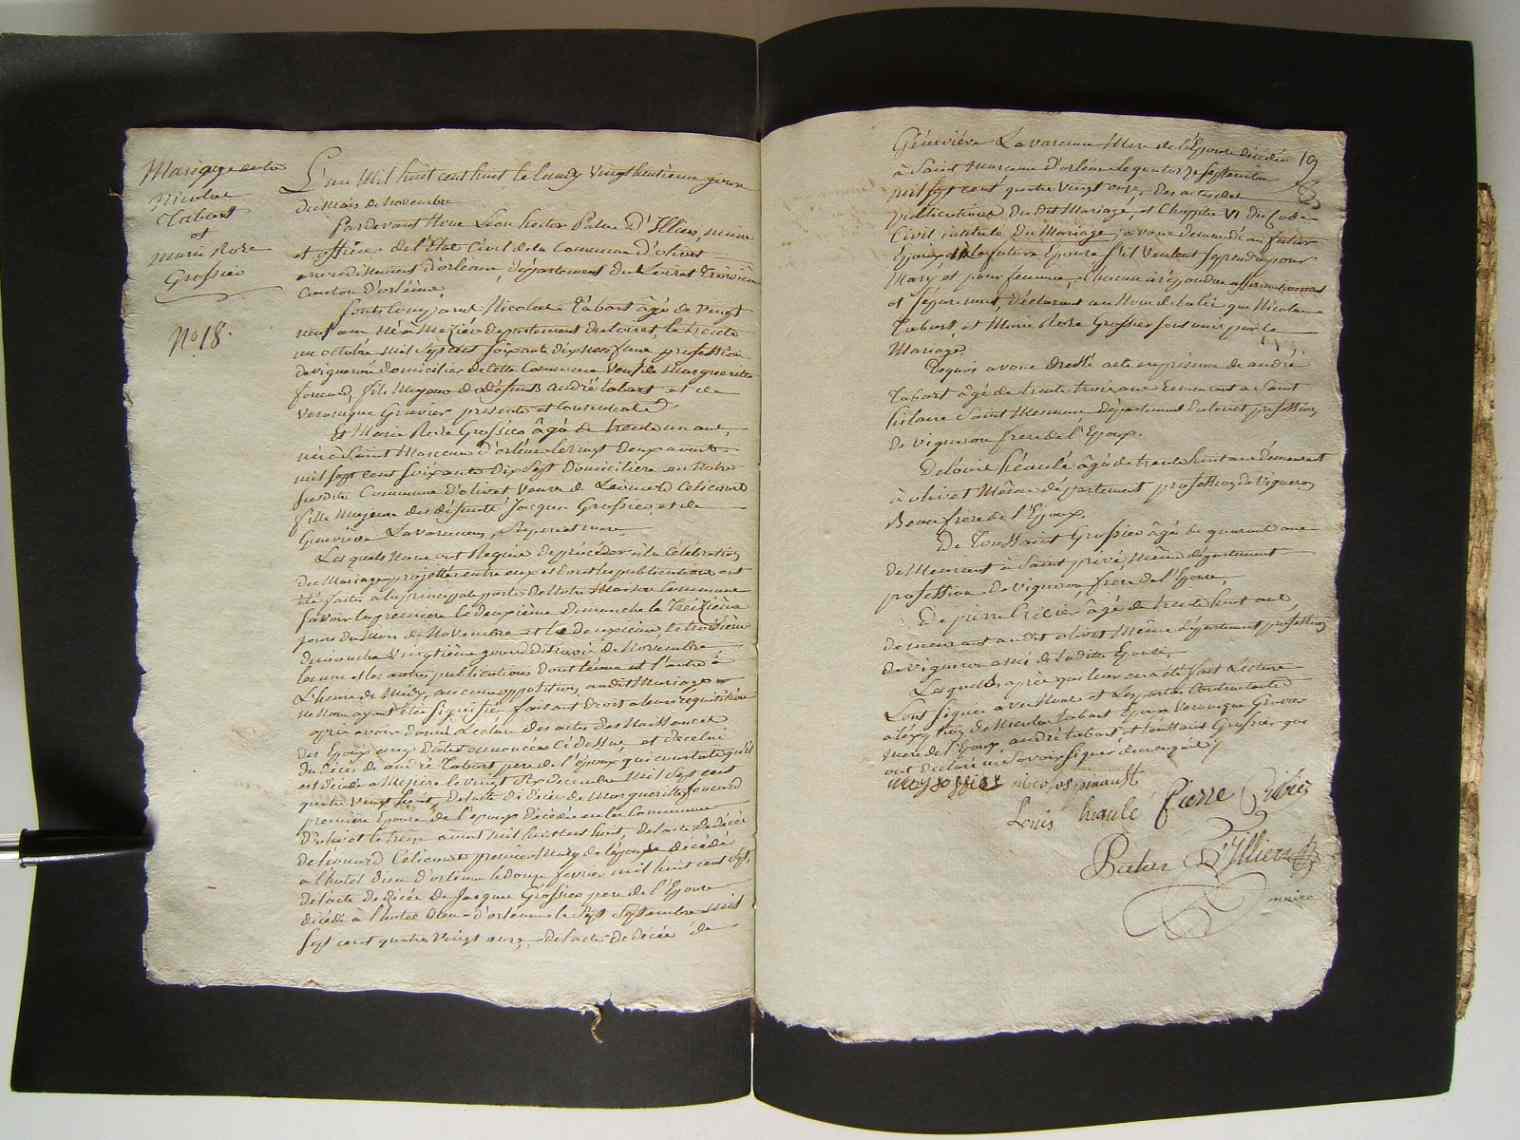 Mariage entre
Nicolas
Tabart
et
marie Rose
Grossier
No. 18.
L'an Mil huit cent huit le lundy vingt huitieme jour
du Mois de novembre
Pardevant Nous Léon hector Patar D'Illiers, maire
et officier de l'Etat Civil de la Commune d'olivet
arrondissement d'orleans, département du Loiret
Canton d'orléans,
sont Comparus Nicolas Tabart âgé de vingt
neuf ans né à Mezieres departement du loiret, le trente
un octobre mil sept cent soixante dix neuf profession
de vigneron domicilier de cette Commune veuf de Margueritte
foucard, fils Majeur de défunts andré tabart et de
Veronique Gravier presente et Consentente
Et Marie Rose Grossier âgée de trente un ans,
née à Saint Marceau d'orléans le vingt deux avril
mil sept cent soixante dix sept domiciliée en Notre
susdite Commune d'olivet veuve de Leonard Celicourt
fille Majeure des défunts jacques Grossier et de
Geneviève Lavarenne, Ses père et mere
Lesquels Nous ont Requis de procéder à la Célébration
du Mariage projetté entre eux et dont les publications ont
été faites à la principale porte de Notre Maison Commune
savoir la premiere le deuxième dimanche le treizième
jour du Mois de Novembre et la deuxieme le troisieme
dimanche vingtième jour dudit mois de Novembre
L'heure de Midy, aucune opposition audit Mariage
ne Nous ayant été signifiée faisant droit à leur réquisition
après avoir donné Lecture des actes des Naissances
des Epoux aux dates énoncées Ci dessus, et de celui
du Décès de andré Tabart pere de l'époux qui constate qu'il
est décédé a Mezieres le vingt Six decembre Mil Sept cent
quatre vingt huit, de l'acte de décès de Marguerite foucard
première Epouse de l'epoux décédée en la Commune
D'olivet le treize avout mil huit cent huit, de l'acte de décès
de Leonard Célicourt premier Mary de l'épouse décédé
a l'hotel Dieu d'orléans le douze fevrier mil huit cent Sept,
de l'acte de décès de Jacques Grossier pere de l'Epouse
décédé à l'hotel Dieu d'orléans le Sept Septembre Mil
Sept cent quatre vingt onze, de l'acte de decès de
19
Géneviéve Lavarenne Mere de l'Epouse décédée
à Saint Marceau D'orléans le quatorze septembre
mil sept cent quatre vingt onze, des actes des
publications du dit Mariage, et Chapitre VI du Code
Civil intitulé du Mariage, avons demandé au futur
Epoux et la future Epouse s'ils veulent se prendre pour
Mary et pour femme, chacun à répondu affirmativement
et séparément, déclarons au Nom de la loi que Nicolas
Tabart et Marie Rose Grossier sont unis par le
Mariage
De quoi avons dressé acte en présence de andré
Tabart âgé de trente trois ans demeurant a Saint
hilaire Saint Mesmin département du loiret profession
de vigneron frere de l'Epoux.
De louis héaulé âgé de trente huit ans demeurant
à olivet Même département profession de vigneron
Beau frere de l'Epoux.
De Toussaint Grossier âgé de quarante ans
demeurant à Saint privé même département
profession de vigneron, frere de l'Epouse,
De pierre Cribier âgé de trente huit ans,
demeurant audit olivet Même département profession
de vigneron ami de laditte Epouse,
Lesquels après qu'il leur en a été fait Lecture
L'ont signés avec Nous et Les parties Contractantes
à l'exception de Nicolas tabart Epoux Veronique Gravier
mere de l'Epoux, andré tabart et toussaint Grossier qui
ont déclaré ne savoir signer de ce enquis
Louis heaulé Pierre Cribier
Patar D'Illiers
maire